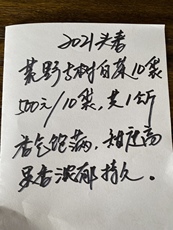 2021头春
荒野古树白茶10袋
500元/10袋,共1斤
香气饱满,甜度高
果香浓郁持久.